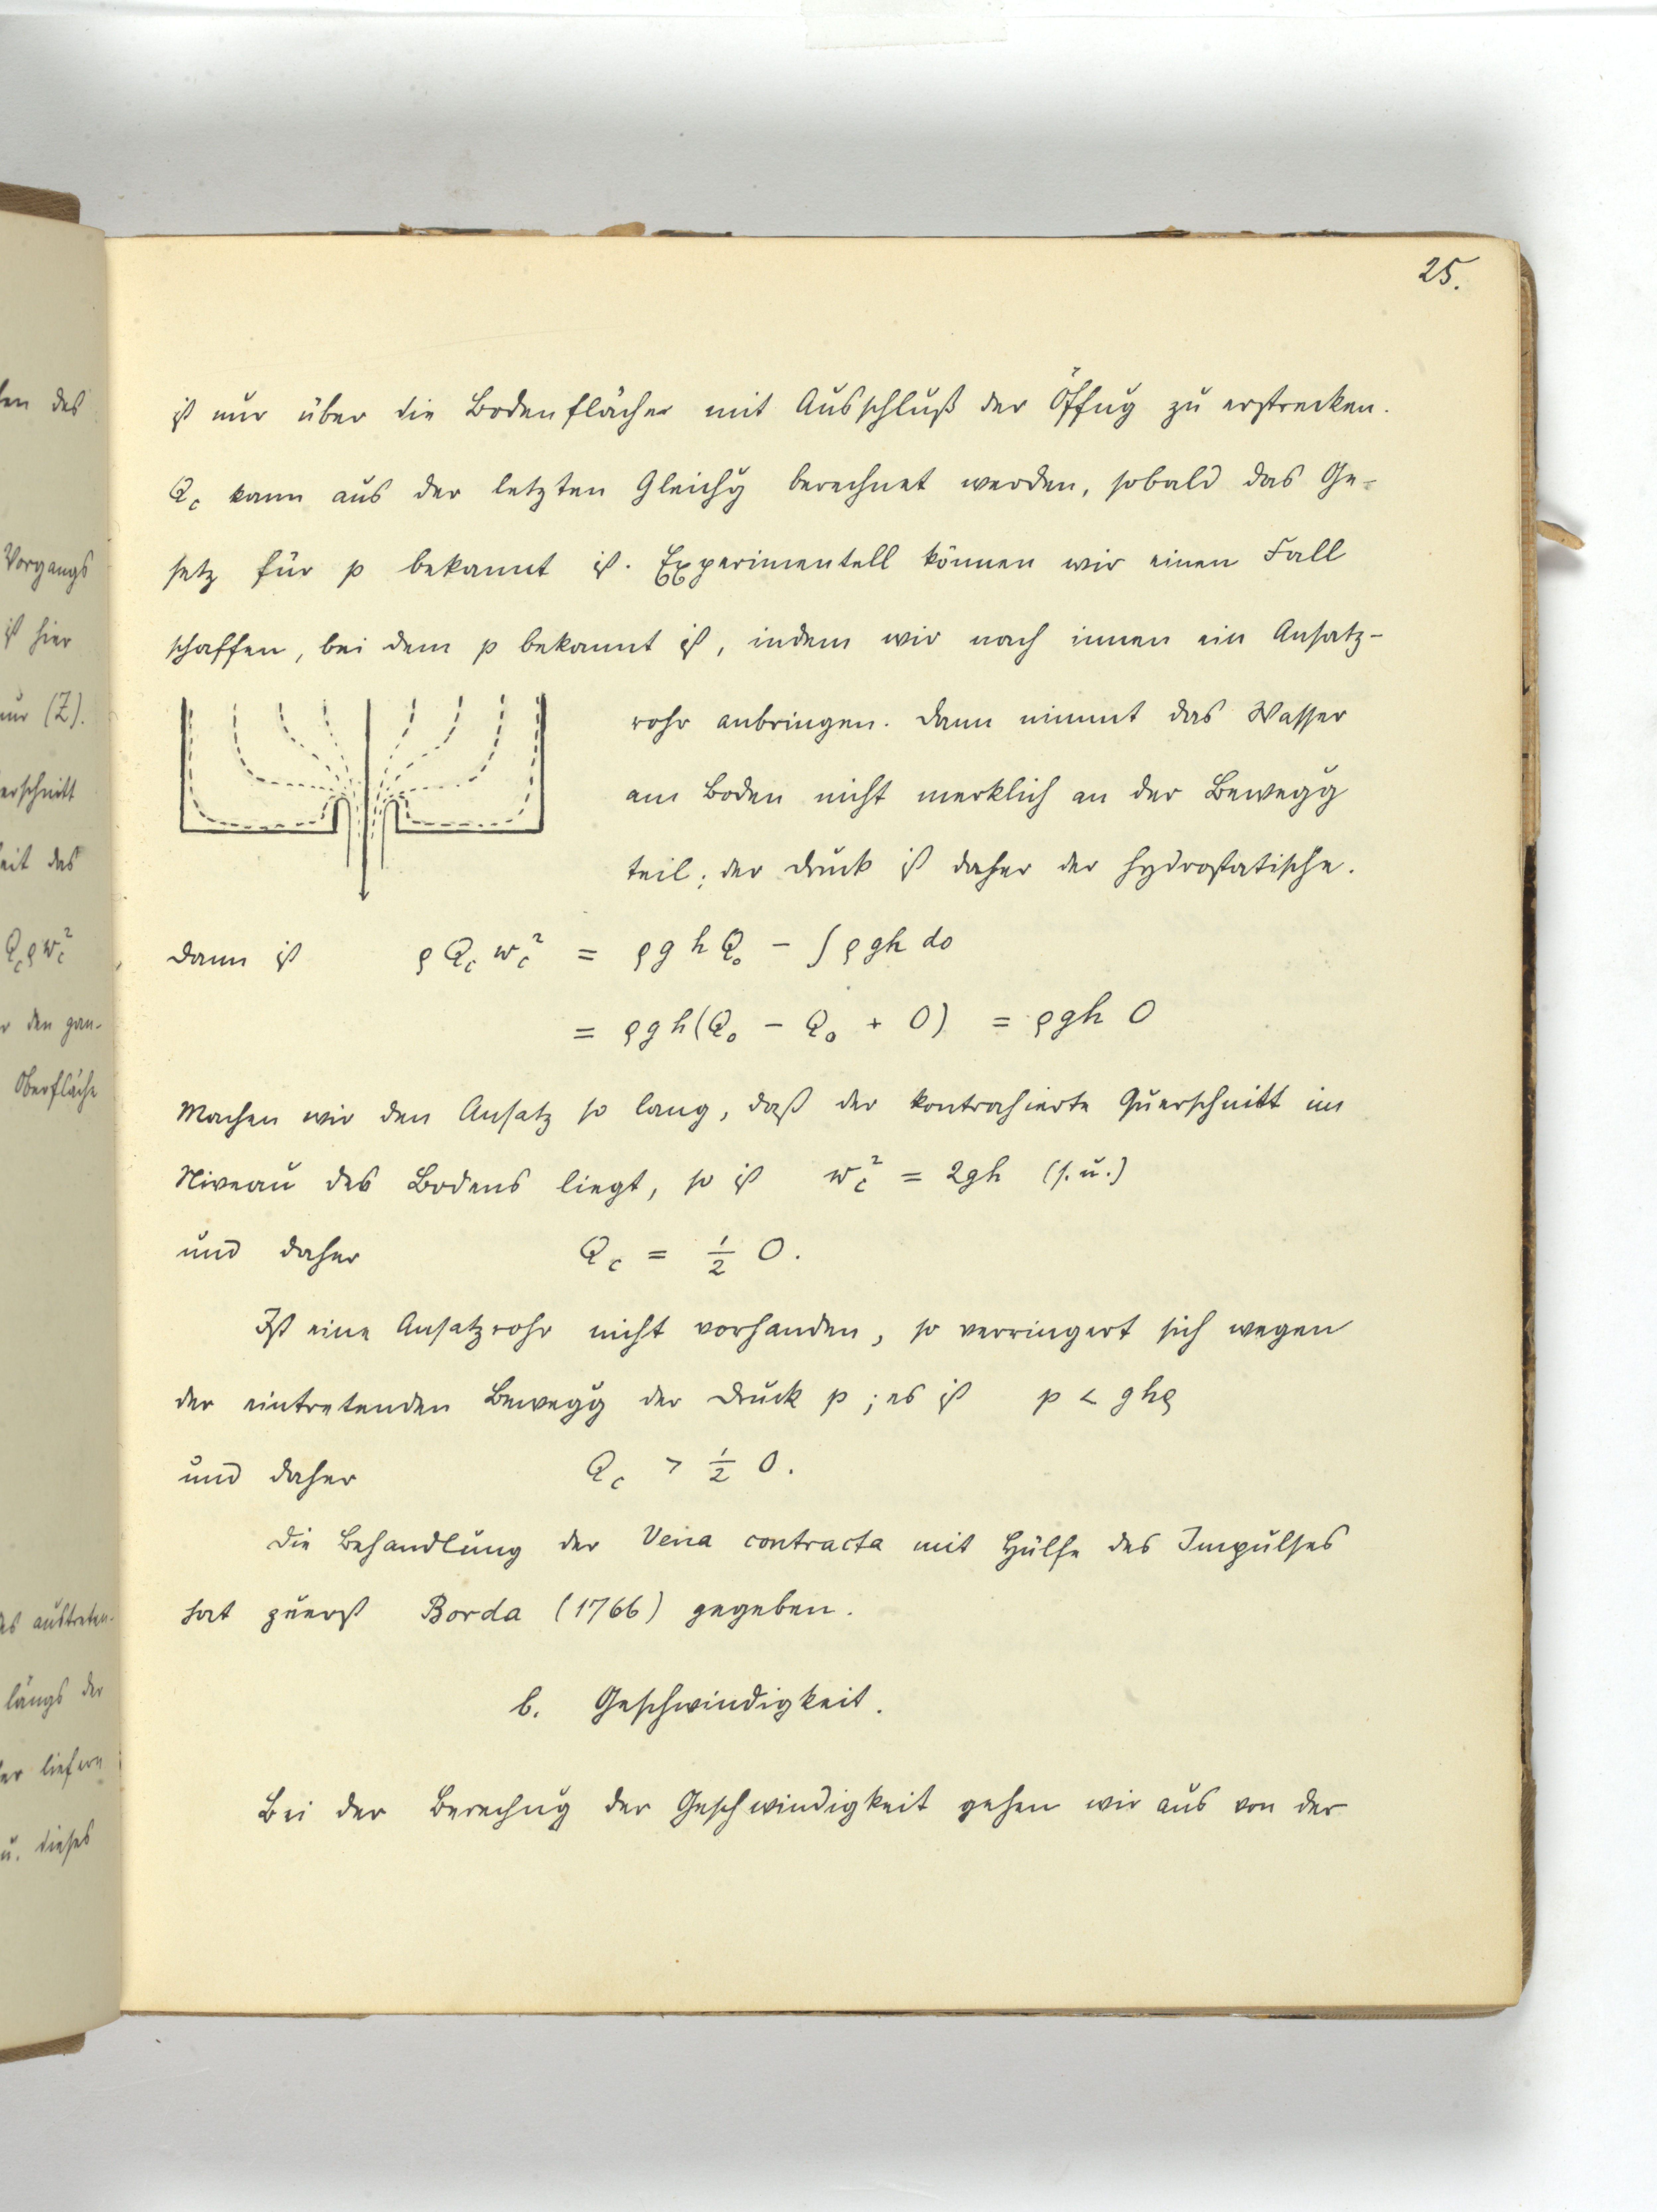 25.
ist nur über die Bodenfläche mit Ausschluß der Öffnug zu erstrecken.
Q_c kann aus der letzten Gleichg berechnet werden, sobald das Ge-
setz für p bekannt ist. Experimentell können wir einen Fall
schaffen, bei dem p bekannt ist, indem wir nach innen ein Ansatz-
rohr anbringen. Dann nimmt das Wasser
am Boden nicht merklich an der Bewegg
teil; der Druck ist daher der hydrostatische.
Dann ist ρ Q_c w_c² = ρ g h Q_o - ∫ ρ g h do
= ρ g h (Q_o - Q_o + O) = ρ g h O
Machen wir den Ansatz so lang, daß der kontrahierte Querschnitt im
Niveau des Bodens liegt, so ist w_c² = 2gh (s.u.)
und daher Q_c = 1/2 O.
Ist eine Ansatzrohr nicht vorhanden, so verringert sich wegen
der eintretenden Bewegg der Druck p; es ist p < g h ρ
und daher Q_c > 1/2 O.
Die Behandlung der Vena contracta mit Hülfe des Impulses
hat zuerst Borda (1766) gegeben.
b. Geschwindigkeit.
Bei der Berechnug der Geschwindigkeit gehen wir aus von der
des
Vorgangs
ist hier
nur (Z).
das
Q_c ρ w_c²
den gan-
Oberfläche
längs der
u. dieses